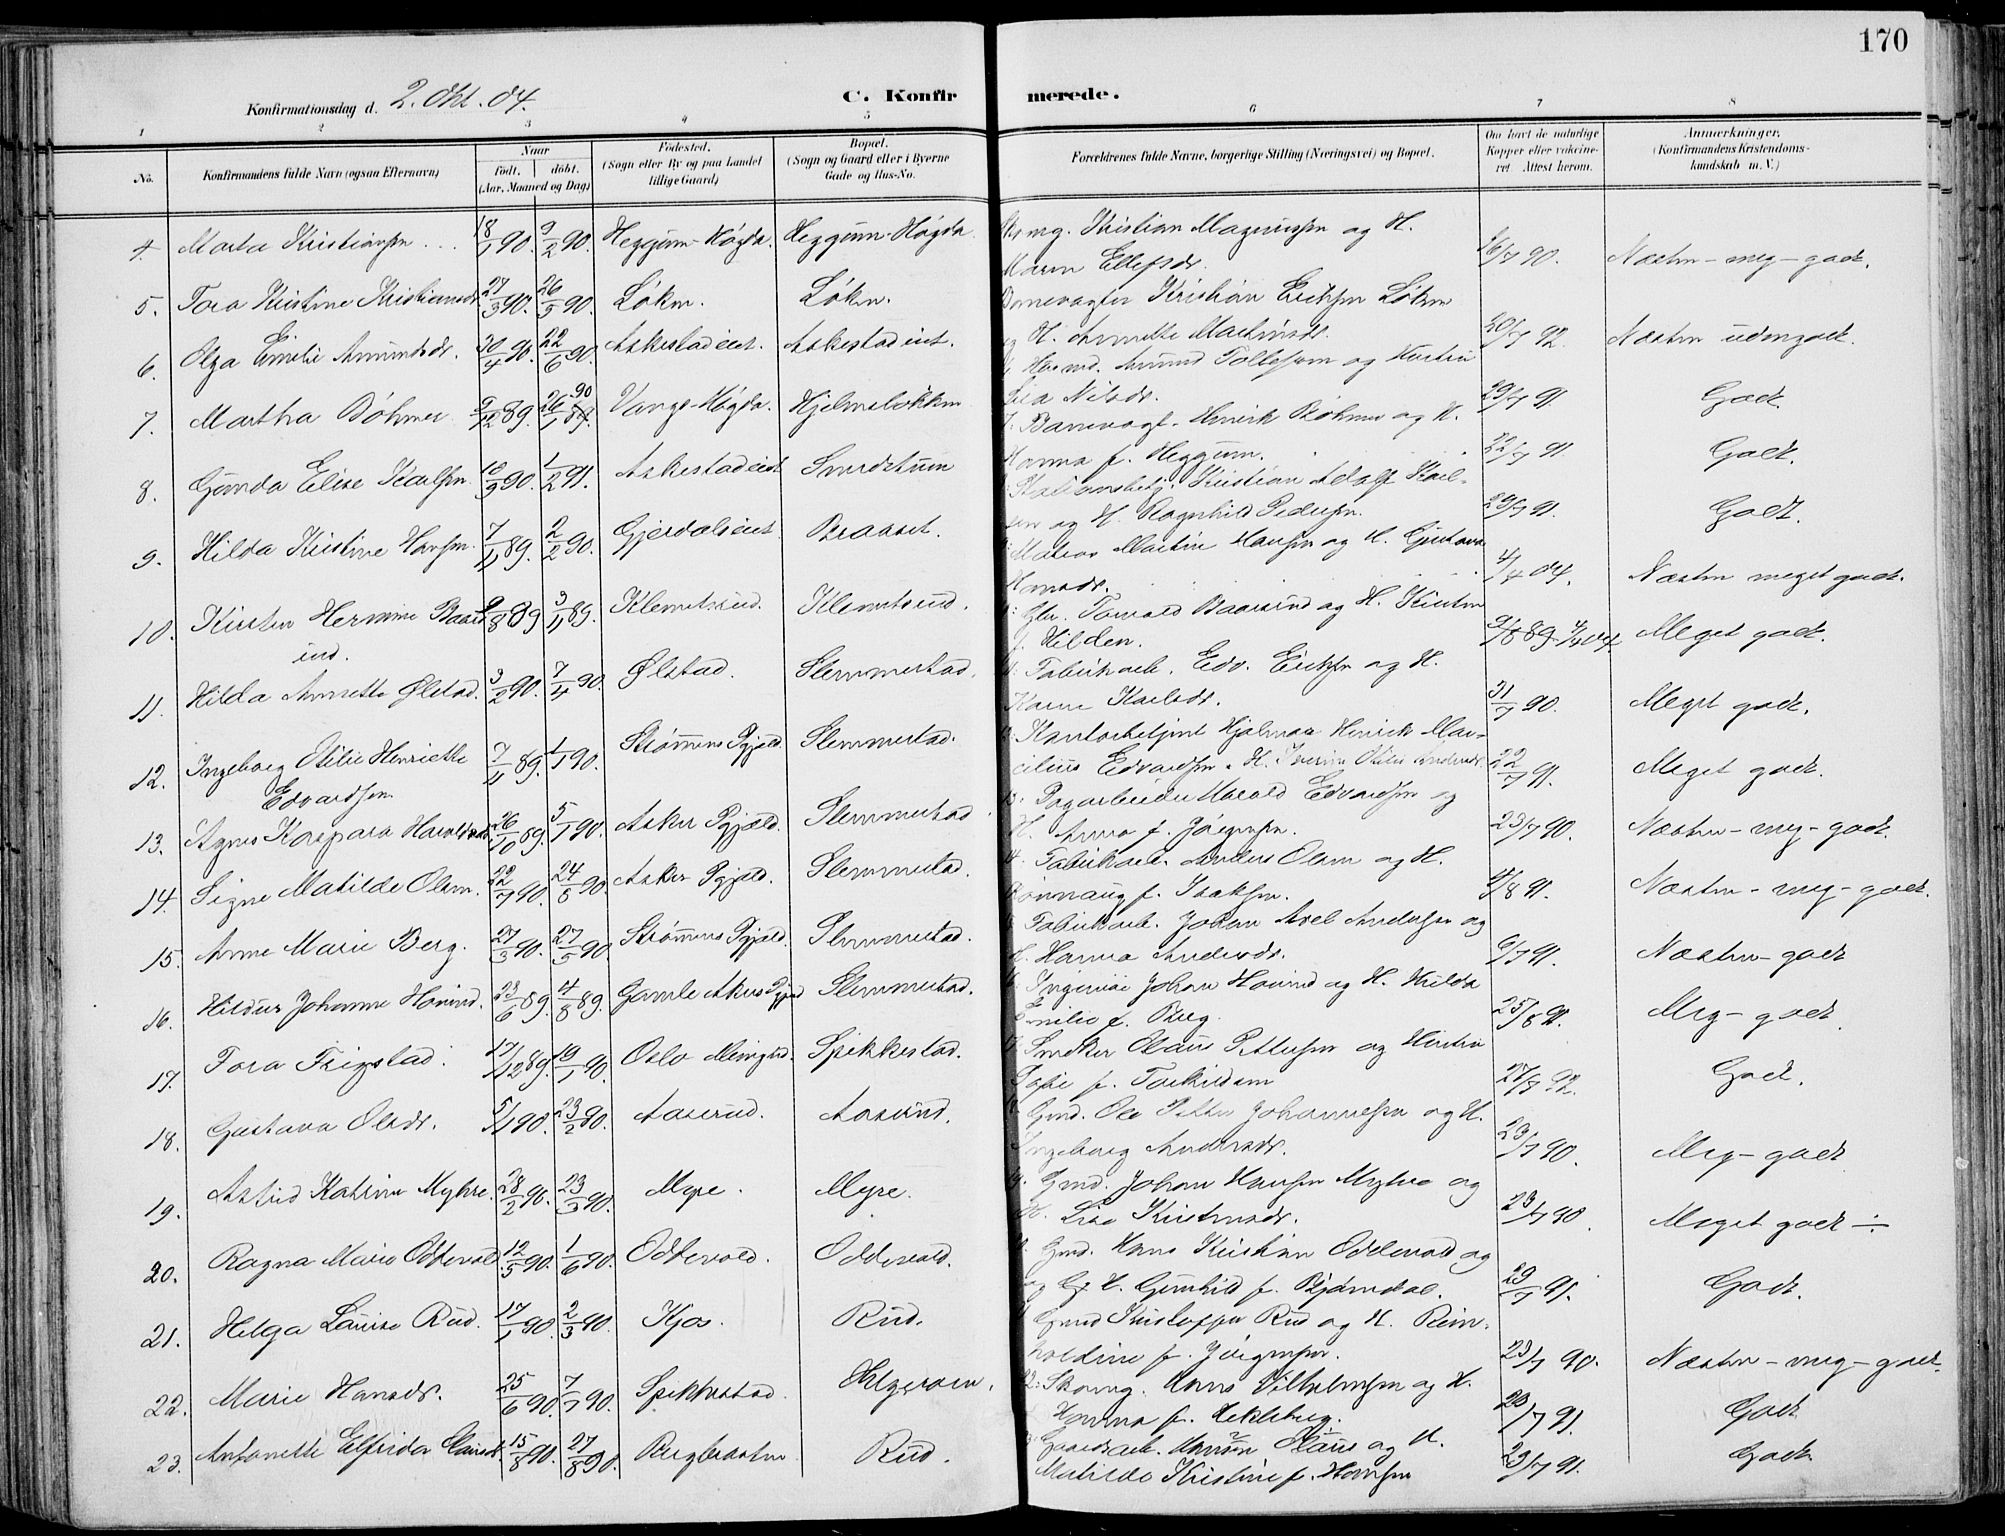 170
Konfirmationsdag d. 2. Okt. 04.
C. Konfirmerede.
1 2 3 4 5 6 7 8
No.
Konfirmandens fulde Navn (ogsaa Efternavn)
Naar
født. døbt.
(Aar, Maaned og Dag)
Fødested.
(Sogn eller By og paa Landet
tillige Gaard)
Bopæl.
(Sogn og Gaard eller i Byerne
Gade og Hus-No.
Forældrenes fulde Navne, borgerlige Stilling (Næringsvei) og Bopæl.
Om havt de naturlige
Kopper eller vakcine-
ret Attest herom.
Anmærkninger.
(Konfirmandens Kristendoms-
kundskab m. V.)
4. Marta Kristiansen 18/1 90. 9/2 90. Heggum-Høgda. Heggum-Høgda Kristian Magnussen og H.
Maren Ellefsdr. 16/7 90. Næsten-meg-godt.
5. Tora Kristine Kristiansdr. 27/3 90. 26/5 90. Løken. Løken. Banevogter Kristian Eriksen Løken
og H. Annette Martinsdr. 20/7 92. Næsten udengodt.
6. Olga Emelie Amundsdr. 30/4 90. 22/6 90. Askestadeiet. Askestadeiet. Husmd. Amund Tollefsen og Hustru
Lisa Nilsdr. 29/7 91. Godt.
7. Martha Bøhmer 9/12 89. 26/1 90 89. Vangs-Høgda. Hjelmeløkken Banevogt. Henrik Bøhmer og H.
Hanna f. Heggum. 22/7 91 Godt.
8. Gunda Elise Karlsen 10/9 90. 1/2 91. Askestadeiet Sverdstuen Stationsbetj. Kristian Adolf Karl-
sen og H. Ragnhild Pedersen. 29/7 91. Godt.
9. Hilda Kristine Hansen 7/11 89. 2/2 90. Gjerdaleiet Braaset. Matros Martin Hansen og H. Gustava
Hansdr. 4/4 04. Næsten meget godt.
10. Kirsten Hermine Baarsrud. 9/8 89 3/11 89. Klemetsrud. Klemetsrud. Torvald Baarsrud og H. Kirsten
f. Hilden. 9/8 89-4/4 04 Meget godt.
11. Hilda Annette Ølstad. 3/2 90. 7/4 90. Ølstad. Slemmestad. Fabrikarb. Edv. Eriksen og H.
Karen Karlsdr. 31/7 90. Meget godt.
12. Ingeborg Otilie Henriette
Edvardsen 7/11 89. 1/1 90. Strømmens Pgjæld. Slemmestad. Kontorbetjent Hjalmar Henrik Mar-
celius Edvardsen. H. Severine Otilie Andersdr. 22/7 91. Meget godt.
13. Agnes Kaspara Haraldsdr. 26/10 89. 5/1 90. Asker Pgjæld. Slemmestad Harald Edvardsen og
H. Anna f. Jørgensen. 23/7 90. Næsten-meg-godt.
14. Signe Matilde Olsen. 22/7 90. 24/8 90. Asker Pgjæld. Slemmestad. Fabrikarb. Anders Olsen og H.
Rønnaug f. Isaksen. 9/8 91. Næsten-meg-godt.
15. Anne Marie Berg. 27/3 90. 27/5 90. Strømmens Pgjæld. Slemmestad. Fabrikarb. Johan Axel Andersen og
H. Hanna Andersdr. 6/7 91. Næsten-godt
16. Hildur Johanne Hovind. 23/6 89. 4/8 89. Gamle Akers Pgjæld Slemmestad. Ingeniør Johan Hovind og H. Hulda
Emilie f. Berg. 25/8 91. Meg-godt
17. Tora Trigstad. 17/12 89. 19/1 90. Oslo Menighed. Spikkestad. Snedker Olaus Pettersen og Hustru
Sofie f. Torkildsen 27/7 92. Godt.
18. Gustava Olsdr. 5/1 90. 23/2 90. Aaserud. Aaserud. Gmd. Ole Petter Johannesen og H.
Ingeborg Andersdr. 23/7 90. Meg-godt
19. Astrid Katrine Myhre. 28/2 90. 23/3 90. Myre. Myre. Gmd. Johan Hansen Myhre og
H. Lise Kristensdr. 23/7 90 Meget godt ÷
20. Ragna Marie Oddevold. 12/5 90. 1/6 90. Oddevold. Oddevold. Gmd. Hans Kristian Oddevold og
og H. Gunhild f. Bjørndal. 29/7 91. Godt.
21. Helga Louise Rud. 17/1 90. 2/3 90. Kjos. Rud. Gmd Kristoffer Rud og H. Rein-
holdine f. Jørgensen. 23/7 90. Næsten-meg-godt.
22. Marie Hansdr. 25/6 90. 7/9 90. Spikkestad. Helgeroen. 22. Skomg. Hans Vilhelmsen og H.
Hanna f. Hekleberg. 23/7 91. Godt
23. Antonette Elfrida 15/8 90. 27/8 90. Bergbraaten Rud. Gaardsarb. Olaus og H.
Matilde Kristine f. Hansen 23/7 91. Godt